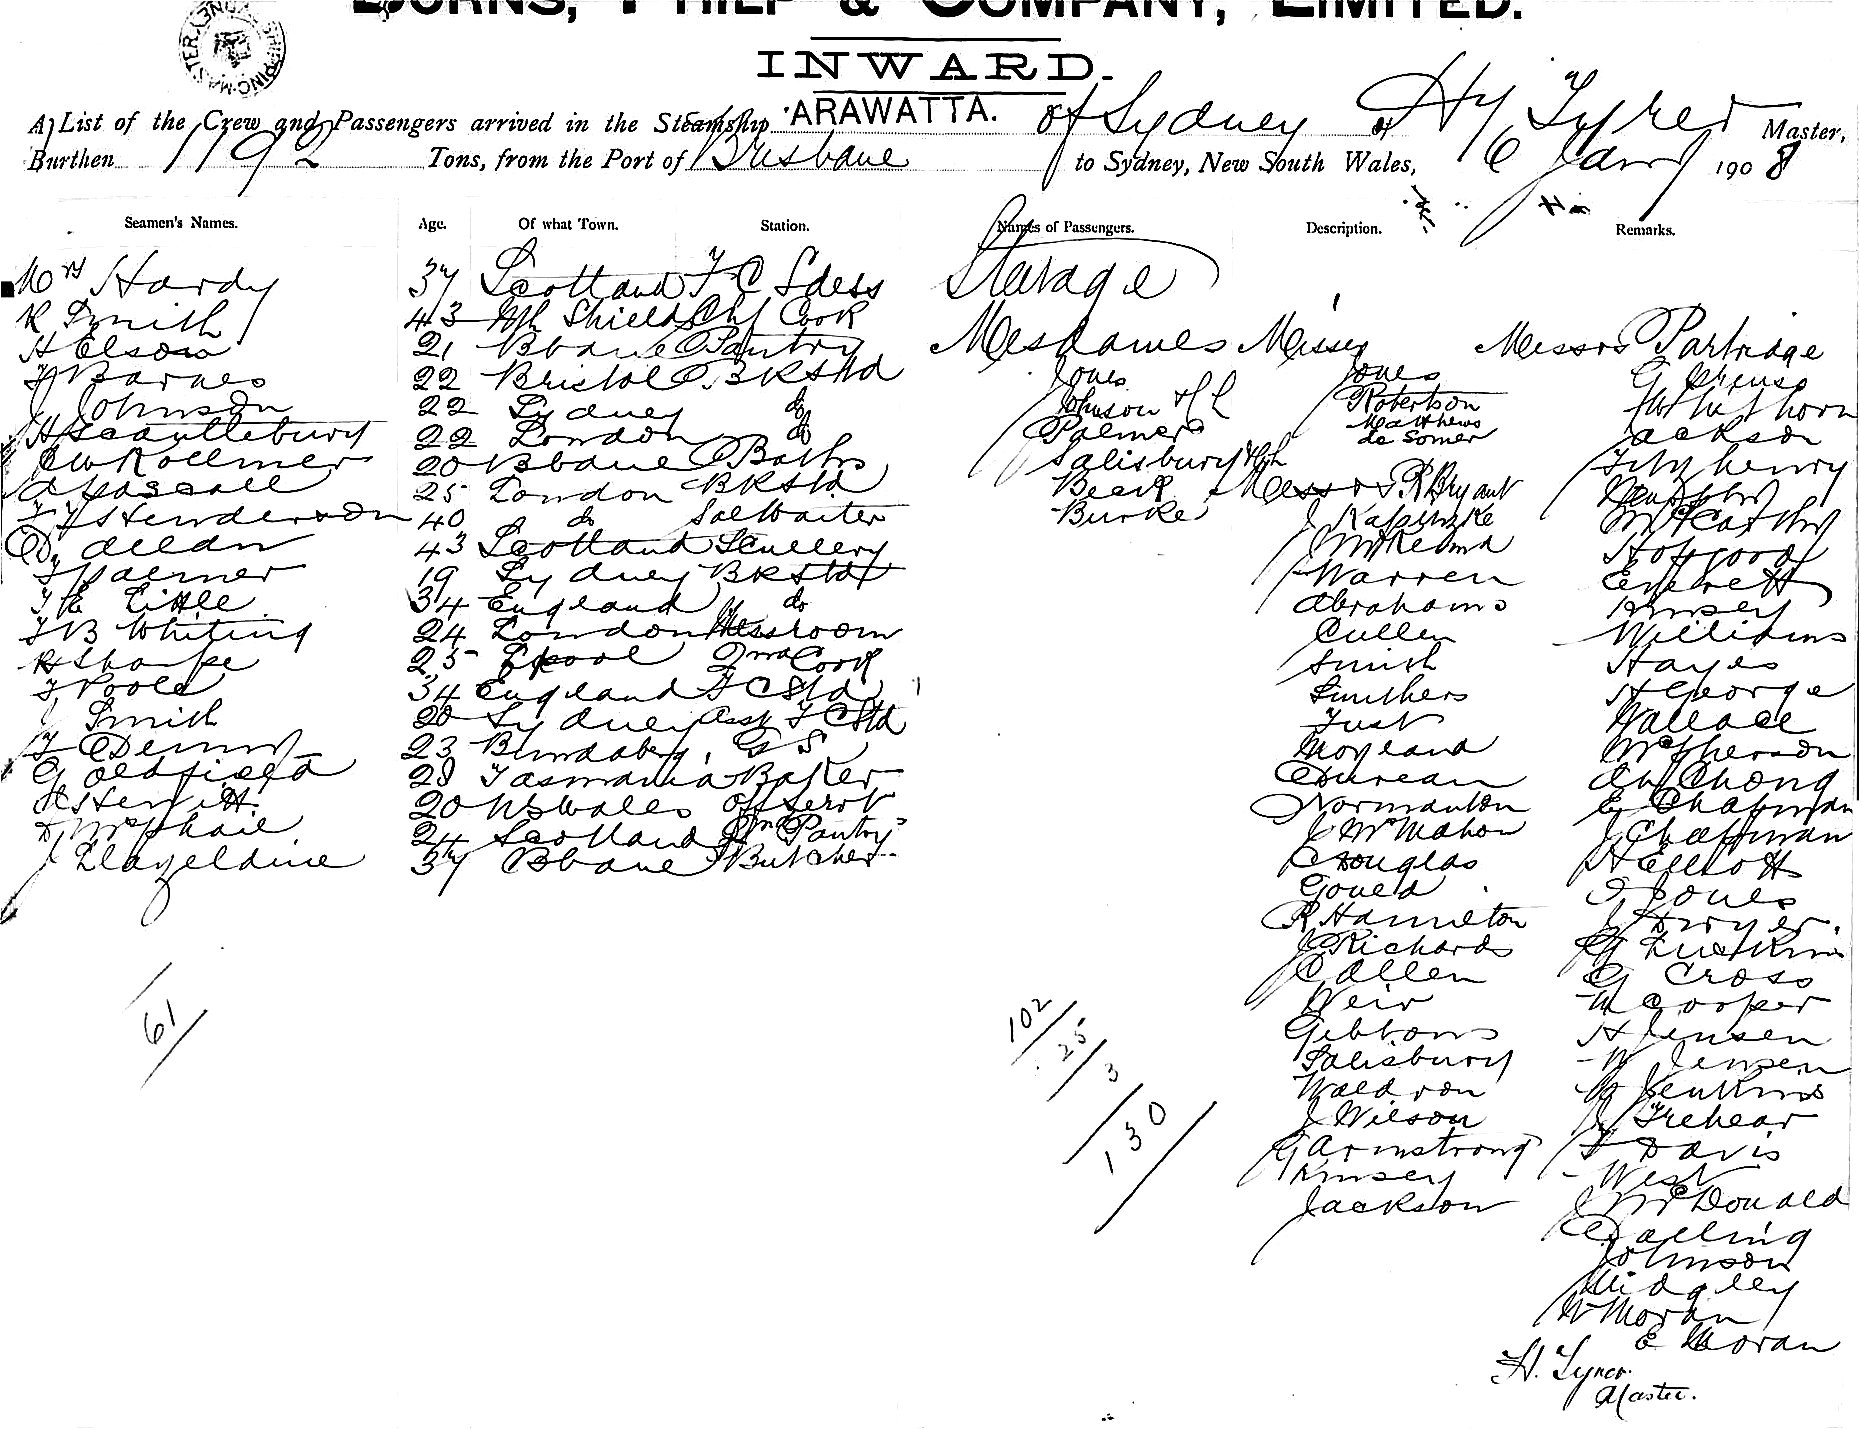 BURNS, PHILP & COMPANY, LIMITED.
INWARD.
A List of the Crew and Passengers arrived in the Steamship ARAWATTA. of Sydney Hy Tyrer Master,
Burthen 1792 Tons, from the Port of Brisbane to Sydney, New South Wales, 6 Jany 1908
Seamen's Names. Age. Of what Town. Station. Names of Passengers. Description. Remarks.
Mrs Hardy 37 Scotland F C Sdess
R Smith 43 Nth Shields Chf Cook
H Elson 21 Bbane Pantry
Barnes 22 Bristol BRStd
J Johnson 22 Sydney do
H Scantlebury 22 London do
Kollmer 20 Bbane Baths
25 London BRStd
Henderson 40 do Sal Waiter
D. Allan 43 Scotland Scullery
Palmer 19 Sydney BRStd
T E Little 34 England do
T B Whiting 24 London Messroom
H Sharpe 25 Lpool 2nd Cook
T Poole 34 England F C Std
J Smith 20 Sydney Asst F C Std
23 Bundaberg G S
G Oldfield 28 Tasmania Baker
20 NSWales
D McPhail 24 Scotland 2nd Pantry
J Hazeldine 37 Bbane Butcher
61
Steerage
Mesdames
Jones
Johnson & C
Palmer
Salisbury & Ch
Beak
Burke
102
25
3
130
Misses
Jones
Robertson
Matthews
de Somer
Messrs R Bryant
Warren
Abrahams
Cullen
Smith
Smithers
Just
Moyland
Durean
Normanton
J McMahon
Douglas
Gould
R Hamilton
J Richards
C Allen
Weir
Gibbons
Salisbury
Waldron
J Wilson
G Armstrong
Kinsey
Jackson
Messrs Partridge
Jackson
Fitzhenry
McCarthy
Hopgood
Everett
Kinsey
Williams
Hayes
H George
Wallace
McPherson
Ah Chong
E Chapman
J Chapman
H Elliott
Jones
J Dwyer
G Cross
W Cooper
H Jensen
W Jensen
W Jenkins
J Trehear
Davis
West
J McDonald
Darling
Johnson
Midgley
W Moran
E Moran
H. Tyrer.
Master.